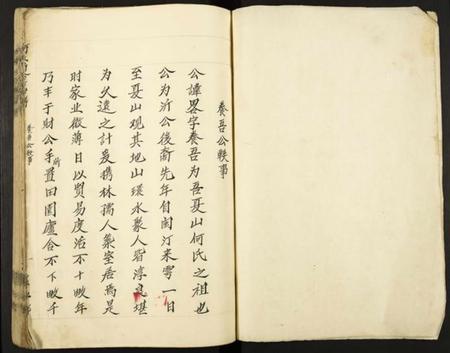 養吾公軼事
公諱畧字養吾为吾夏山何氏之祖也
公为沂公後裔先年自闽汀来雩一日
至夏山观其地山環水聚人皆淳良堪
为久遠之計爰携林孺人築室居焉是
时家业微薄日以贸易度活不十畝年
乃丰于财公手所置田園廬舍不下畝千
養吾公軼事